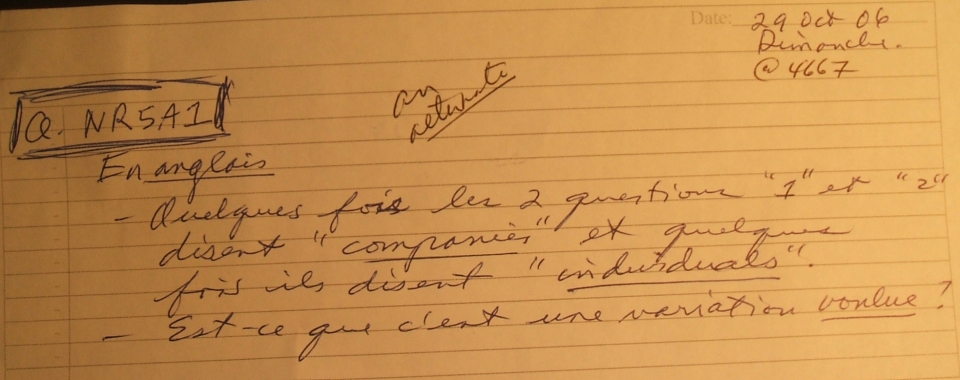 Date: 29 Oct 06
Dimanche.
@ 4667
an
alternate
Q. NR5A1
En anglais
- Quelques fois les 2 questions "1" et "2"
disent "companies" et quelques
fois ils disent "individuals".
- Est-ce que c'est une variation voulue?